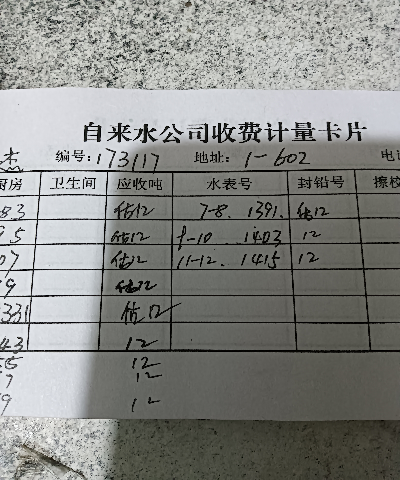 自来水公司收费计量卡片
杰 编号:173117 地址:1-602 电
厨房 卫生间 应收吨 水表号 封铅号
83 估12 7-8. 1391. 估12
95 估12 9-10 1403 12
07 估12 11-12. 1415 12
9 估12
331 估12
43 12
55 12
7 12
9 12